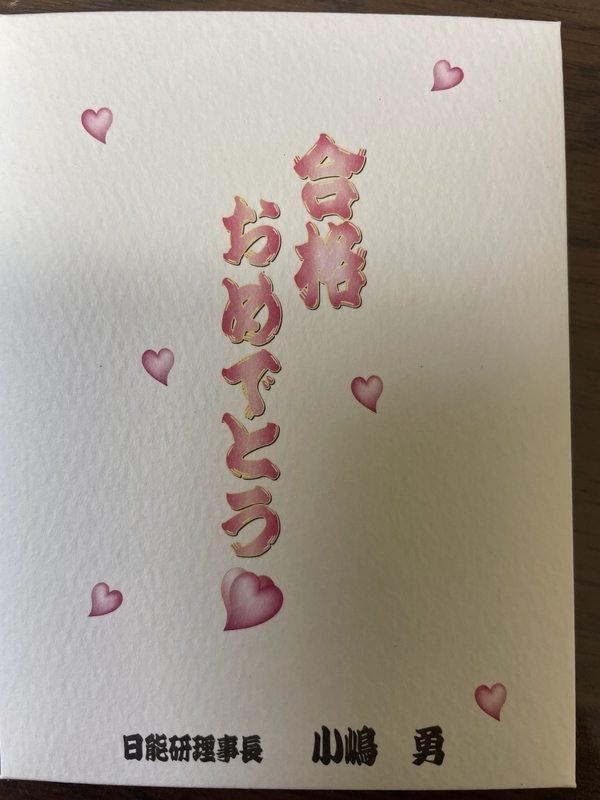 合格
おめでとう
日能研理事長　小嶋　勇